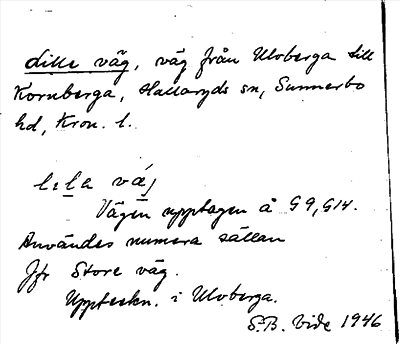 Lille väg, väg från Uloberga till
Kornberga, Hallaryds sn, Sunnerbo
hd, Kron. l.
lila väj
Vägen upptagen å G9, G14.
Användes numera sällan
Jfr Store väg.
Uppteckn. i Uloberga.
S.B. Vide 1946